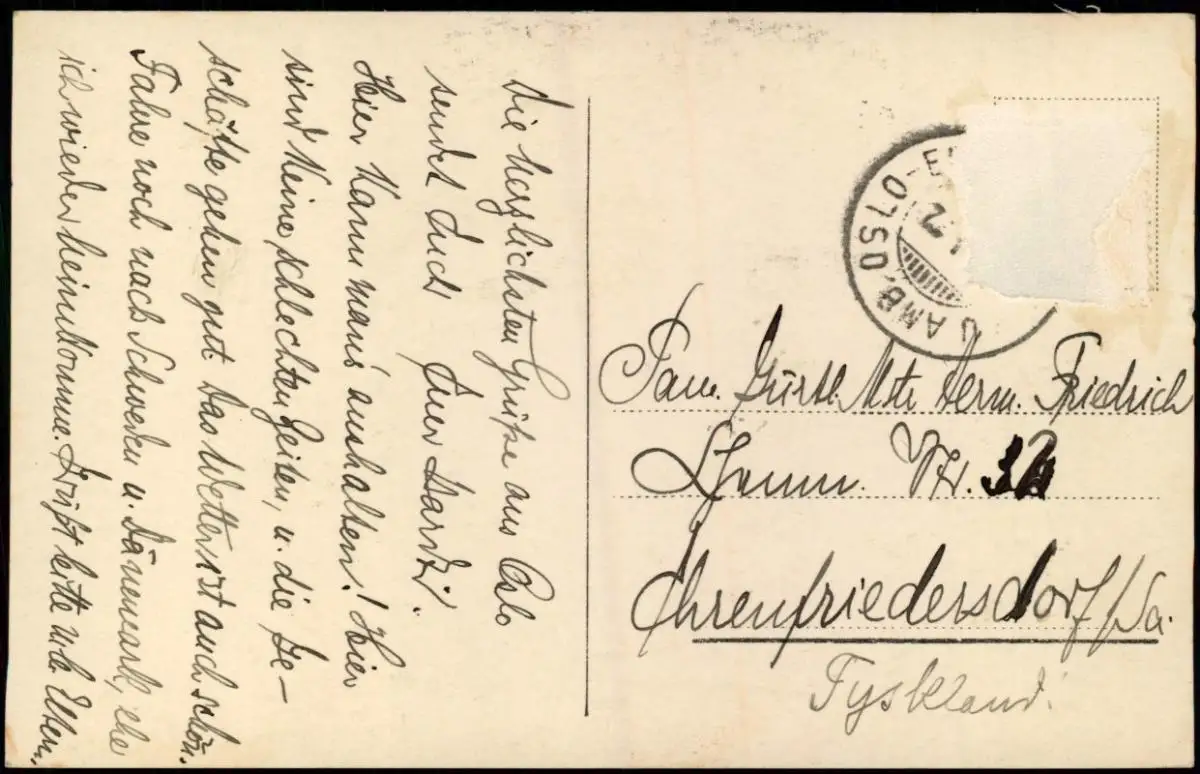 Die herzlichsten Grüße aus Oslo
sendet Euch Euer
Hier kann man's aushalten! Hier
sind keine schlechten Zeiten, u. die Ge-
schäfte gehen gut. Das Wetter ist auch schön.
Fahre noch nach Schweden u. Dänemark, ehe
ich wieder heimkomme. Grüßt bitte m. l. Eltern.
OSLO
Fam. Herm. Friedrich
Str.
Ehrenfriedersdorf/Sa.
Tyskland.